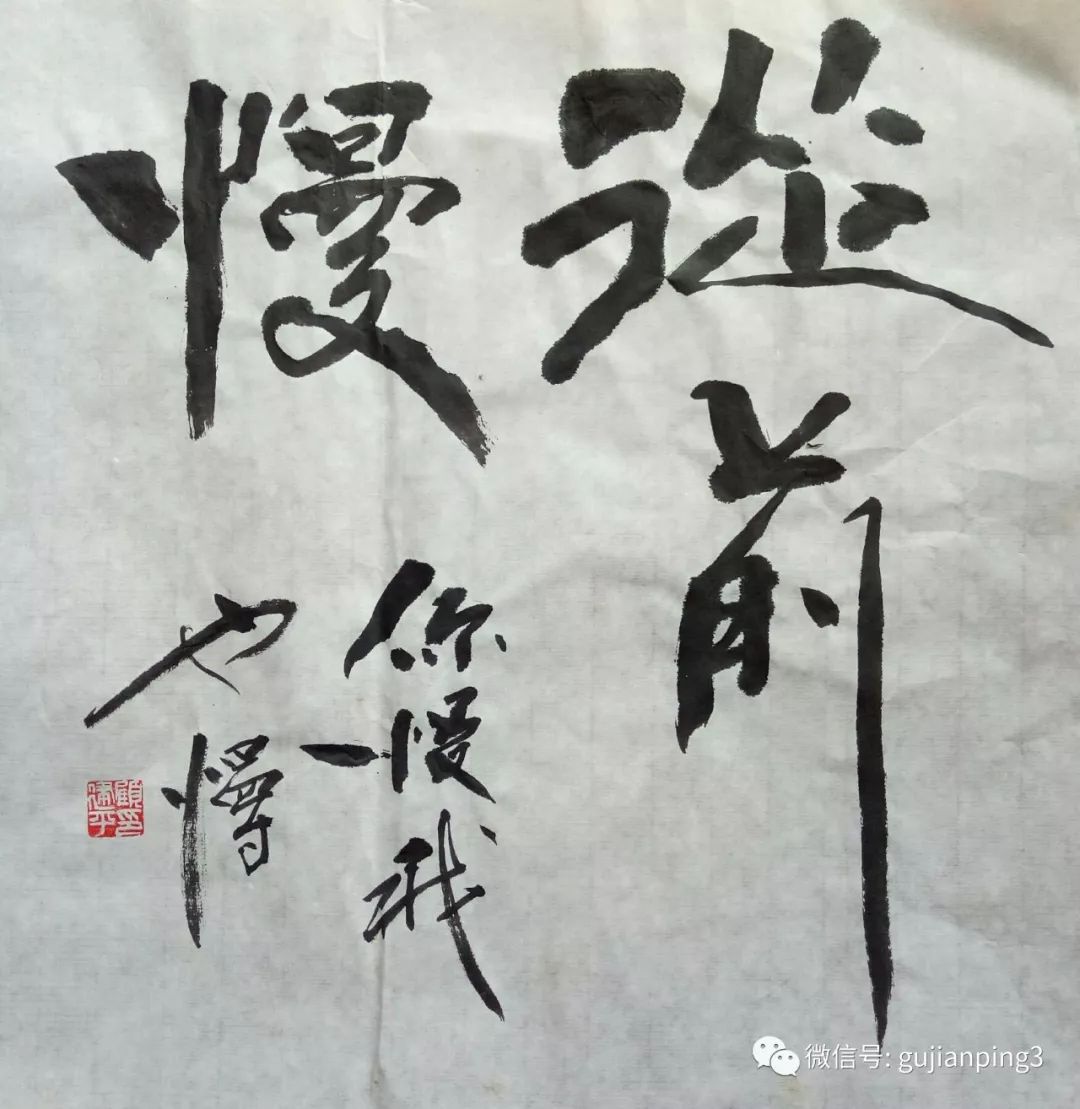 從前
慢
你慢我
也慢
顧印
建平
微信号: gujianping3